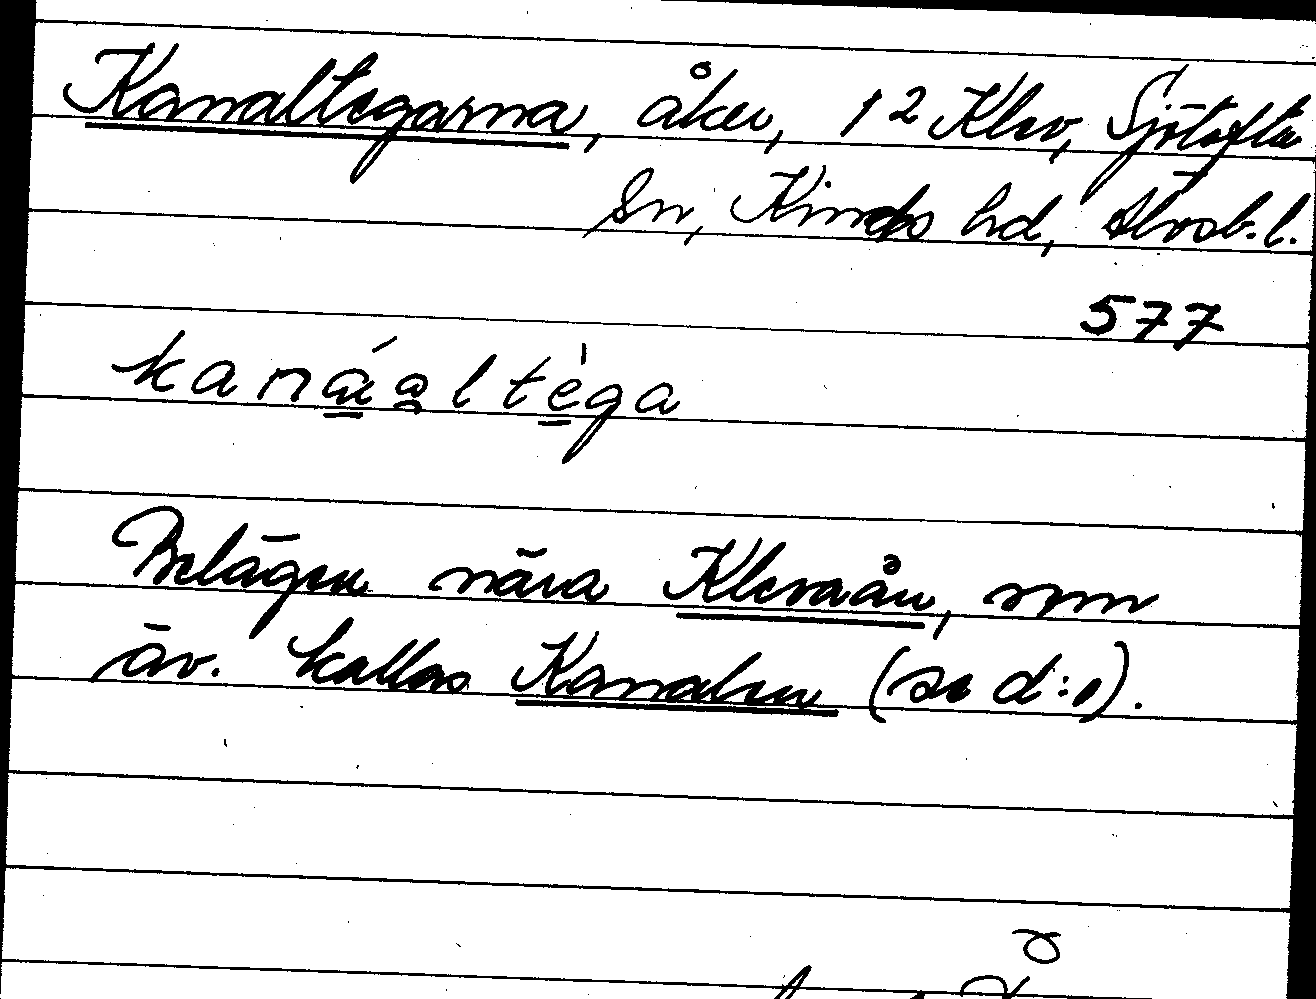 Kanaltegarna, åker, 12 Klev, Sjötofta
sn, Kinds hd, Älvsb. l.
577
kanáal tèga
Belägen nära Klevaån, som
äv. kallas Kanalen (se d:o).